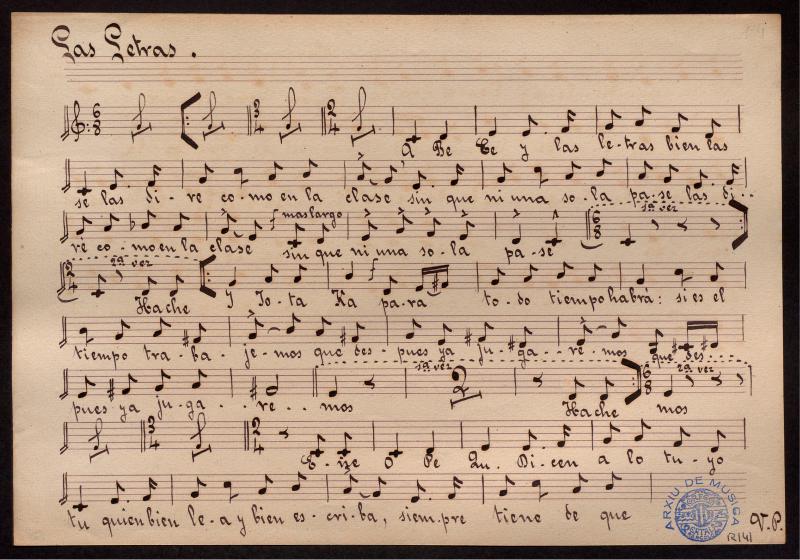 Las Letras.
A Be Ce y las le-tras bien las
se las di-re co-mo en la clase sin que ni una so-la pa-se las di--
mas largo
1ª vez
ré co-mo en la clase sin que ni una so-la pa-se
2ª vez
Hache y Jo-ta Ka pa-ra to-do tiempo habrá: si es el
tiempo tra-ba-je-mos que des-pues ya ju-ga-re-mos que des--
1ª vez
2ª vez
pues ya ju-ga--re--mos Hache mos
O Pe Qu. Di-cen a lo tu-yo
tu quien bien le-a y bien es-cri-ba, siem-pre tiene de que
ARXIU DE MÚSICA
V. P.